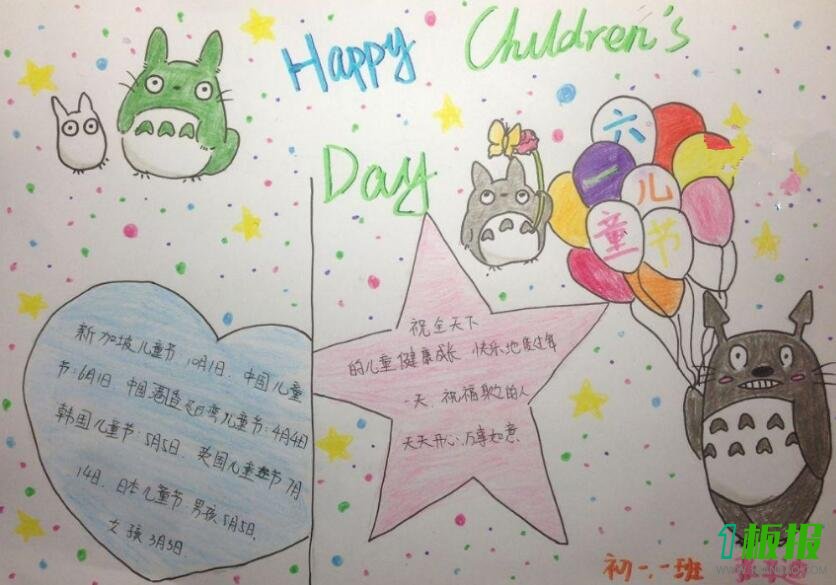 Happy Children's
Day
六
一儿
童节
新加坡儿童节10月1日、中国儿童
节:6月1日、中国港澳台湾儿童节:4月4日
韩国儿童节:5月5日、英国儿童节7月
14日、日本儿童节:男孩5月5日,
女孩3月3日.
祝全天下
的儿童健康成长 快乐地度过每
一天.祝福
的人
天天开心,万事如意
初一.一班
1板报